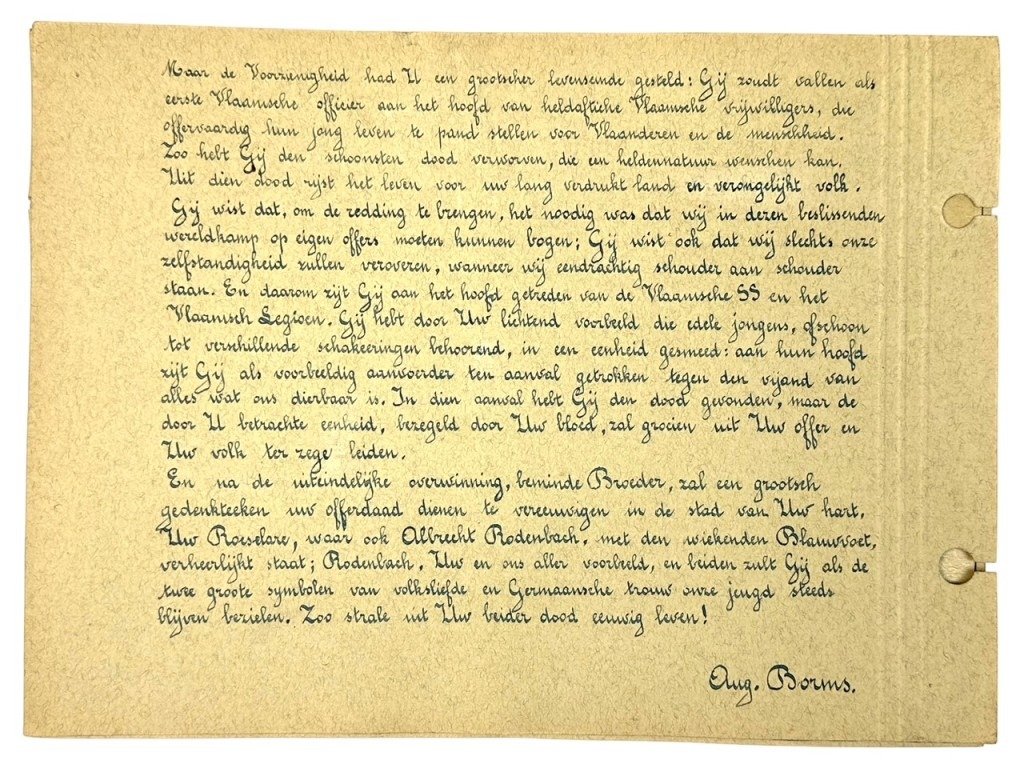 Maar de Voorzienigheid had U een grootscher levenseinde gesteld: Gij zoudt vallen als
eerste Vlaamsche officier aan het hoofd van heldaftiche Vlaamsche vrijwilligers, die
offervaardig hun jong leven te pand stellen voor Vlaanderen en de menschheid.
Zoo hebt Gij den schoonsten dood verworven, die een heldennatuur wenschen kan.
Uit dien dood rijst het leven voor uw lang verdrukt land en verongelijkt volk.
Gij wist dat, om de redding te brengen, het noodig was dat wij in dezen beslissenden
wereldkamp op eigen offers moeten kunnen bogen; Gij wist ook dat wij slechts onze
zelfstandigheid zullen veroveren, wanneer wij eendrachtig schouder aan schouder
staan. En daarom zijt Gij aan het hoofd getreden van de Vlaamsche SS en het
Vlaamsch Legioen. Gij hebt door Uw lichtend voorbeeld die edele jongens, ofschoon
tot verschillende schakeeringen behoorend, in een eenheid gesmeed: aan hun hoofd
zijt Gij als voorbeeldig aanvoerder ten aanval getrokken tegen den vijand van
alles wat ons dierbaar is. In dien aanval hebt Gij den dood gevonden, maar de
door U betrachte eenheid, bezegeld door Uw bloed, zal groeien uit Uw offer en
Uw volk ter zege leiden.
En na de uiteindelijke overwinning, beminde Broeder, zal een grootsch
gedenkteeken uw offerdaad dienen te vereeuwigen in de stad van Uw hart,
Uw Roeselare, waar ook Albrecht Rodenbach, met den wiekenden Blauwvoet,
verheerlijkt staat; Rodenbach, Uw en ons aller voorbeeld, en beiden zult Gij als de
twee groote symbolen van volksliefde en Germaansche trouw onze jeugd steeds
blijven bezielen. Zoo strale uit Uw beider dood eeuwig leven!
Aug. Borms.